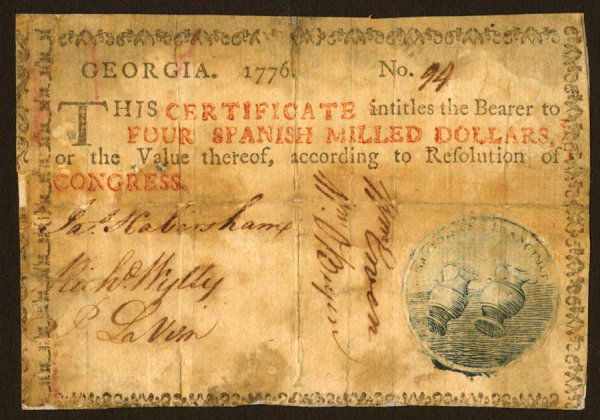 GEORGIA. 1776. No. 94
THIS CERTIFICATE intitles the Bearer to
FOUR SPANISH MILLED DOLLARS,
or the Value thereof, according to Reſolution of
CONGRESS.
Jas. Habersham
Richd. Wylly
Wm